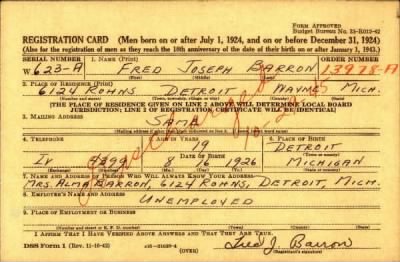 FORM APPROVED
Budget Bureau No. 33-R012-42
REGISTRATION CARD (Men born on or after July 1, 1924, and on or before December 31, 1924)
(Also for the registration of men as they reach the 18th anniversary of the date of their birth on or after January 1, 1943.)
SERIAL NUMBER 1. NAME (Print) ORDER NUMBER
W 623-A FRED JOSEPH BARRON 13978-A
2. PLACE OF RESIDENCE (Print)
6124 ROHNS DETROIT WAYNE MICH.
(Number and street) (Town, township, village or city) (County) (State)
[THE PLACE OF RESIDENCE GIVEN ON LINE 2 ABOVE WILL DETERMINE LOCAL BOARD
JURISDICTION; LINE 2 OF REGISTRATION CERTIFICATE WILL BE IDENTICAL]
3. MAILING ADDRESS
SAME
4. TELEPHONE 5. AGE IN YEARS 6. PLACE OF BIRTH
19 DETROIT
DATE OF BIRTH
Iv 8299 8 16 1926 MICHIGAN
7. NAME AND ADDRESS OF PERSON WHO WILL ALWAYS KNOW YOUR ADDRESS
MRS. ALMA BARRON, 6124 ROHNS, DETROIT, MICH.
8. EMPLOYER'S NAME AND ADDRESS
UNEMPLOYED
9. PLACE OF EMPLOYMENT OR BUSINESS
(Number and street or R. F. D. number) (Town) (County) (State)
I AFFIRM THAT I HAVE VERIFIED ABOVE ANSWERS AND THAT THEY ARE TRUE.
DSS Form 1 (Rev. 11-16-42) (OVER) Fred J. Barron
(Registrant's signature)